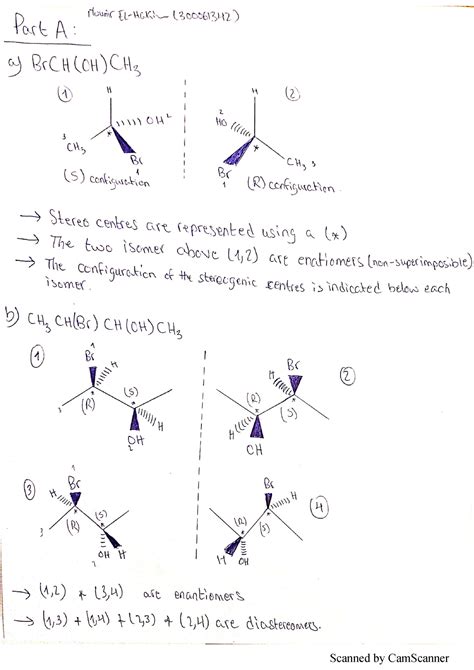 Part A:
(300061342)
a) BrCH(OH)CH₃
(1)
H
OH²
³
CH₃
*
Br
1
(S) configuration
(2)
H
2
HO
*
CH₃ ₃
Br
1
(R) configuration.
→ Stereo centres are represented using a (*)
→ The two isomer above (1,2) are enatiomers (non-superimposible)
→ The configuration of the stereogenic centres is indicated below each
isomer.
b) CH₃ CH(Br) CH(OH)CH₃
1
1
Br
H
(S)
*
3
(R)
*
H
OH
2
2
Br
H
(R)
*
*
(S)
H
OH
3
1
Br
H
*
(S)
3
(R)
*
2
OH
H
4
Br
H
*
(R)
*
(S)
H
OH
→ (1,2) + (3,4) are enantiomers
→ (1,3) + (1,4) + (2,3) + (2,4) are diastereomers.
Scanned by CamScanner